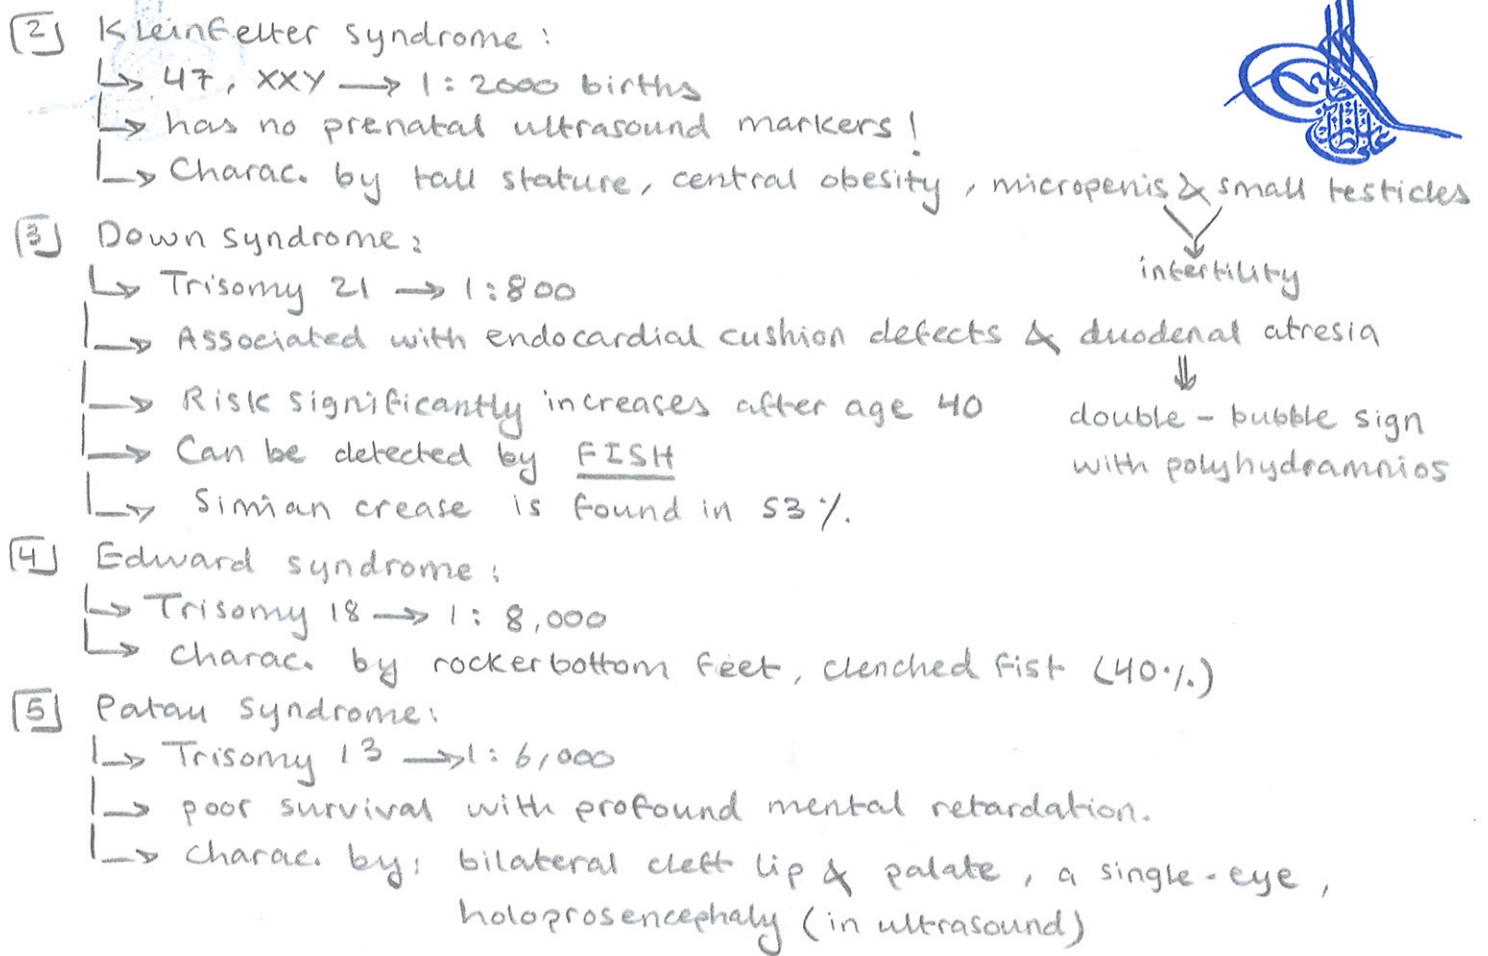 [2] Kleinfelter syndrome:
↳ 47, XXY → 1:2000 births
↳ has no prenatal ultrasound markers!
↳ Charac. by tall stature, central obesity, micropenis & small testicles
infertility
[3] Down syndrome:
↳ Trisomy 21 → 1:800
↳ Associated with endocardial cushion defects & duodenal atresia
⇓
double-bubble sign
with polyhydramnios
↳ Risk significantly increases after age 40
↳ Can be detected by FISH
↳ Simian crease is found in 53%.
[4] Edward syndrome:
↳ Trisomy 18 → 1:8,000
↳ charac. by rockerbottom feet, clenched fist (40%)
[5] Patau syndrome:
↳ Trisomy 13 → 1:6,000
↳ poor survival with profound mental retardation.
↳ charac. by: bilateral cleft lip & palate, a single-eye,
holoprosencephaly (in ultrasound)